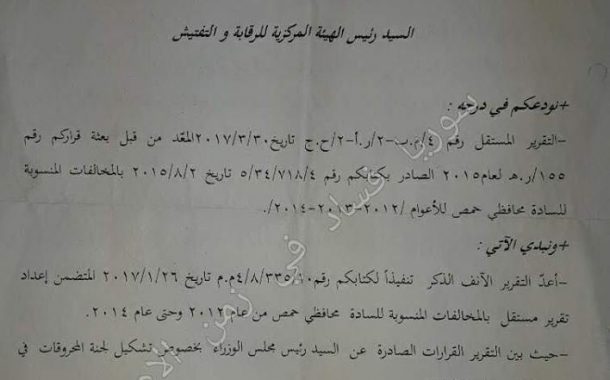 السيد رئيس الهيئة المركزية للرقابة و التفتيش
+نودعكم في درجه :
–التقرير المستقل رقم ٤/م.ب-٢/ر.أ-٢/ح.ج تاريخ٢٠١٧/٣/٣٠المعّد من قبل بعثة قراركم رقم
١٥٥/ر.هـ لعام٢٠١٥ الصادر بكتابكم رقم ٥/٣٤/٧١٨/٤ تاريخ ٢٠١٥/٨/٢ بالمخالفات المنسوبة
للسادة محافظي حمص للأعوام /٢٠١٢-٢٠١٣-٢٠١٤/.
+ونبدي الآتي :
–أعدّ التقرير الآنف الذكر تنفيذاً لكتابكم م.م تاريخ ٢٠١٧/١/٢٦ المتضمن إعداد
تقرير مستقل بالمخالفات المنسوبة للسادة محافظي حمص من عام ٢٠١٢ وحتى عام ٢٠١٤.
–حيث بين التقرير القرارات الصادرة عن السيد رئيس مجلس الوزراء بخصوص تشكيل لجنة المحروقات في
سوريا فساد في زمن